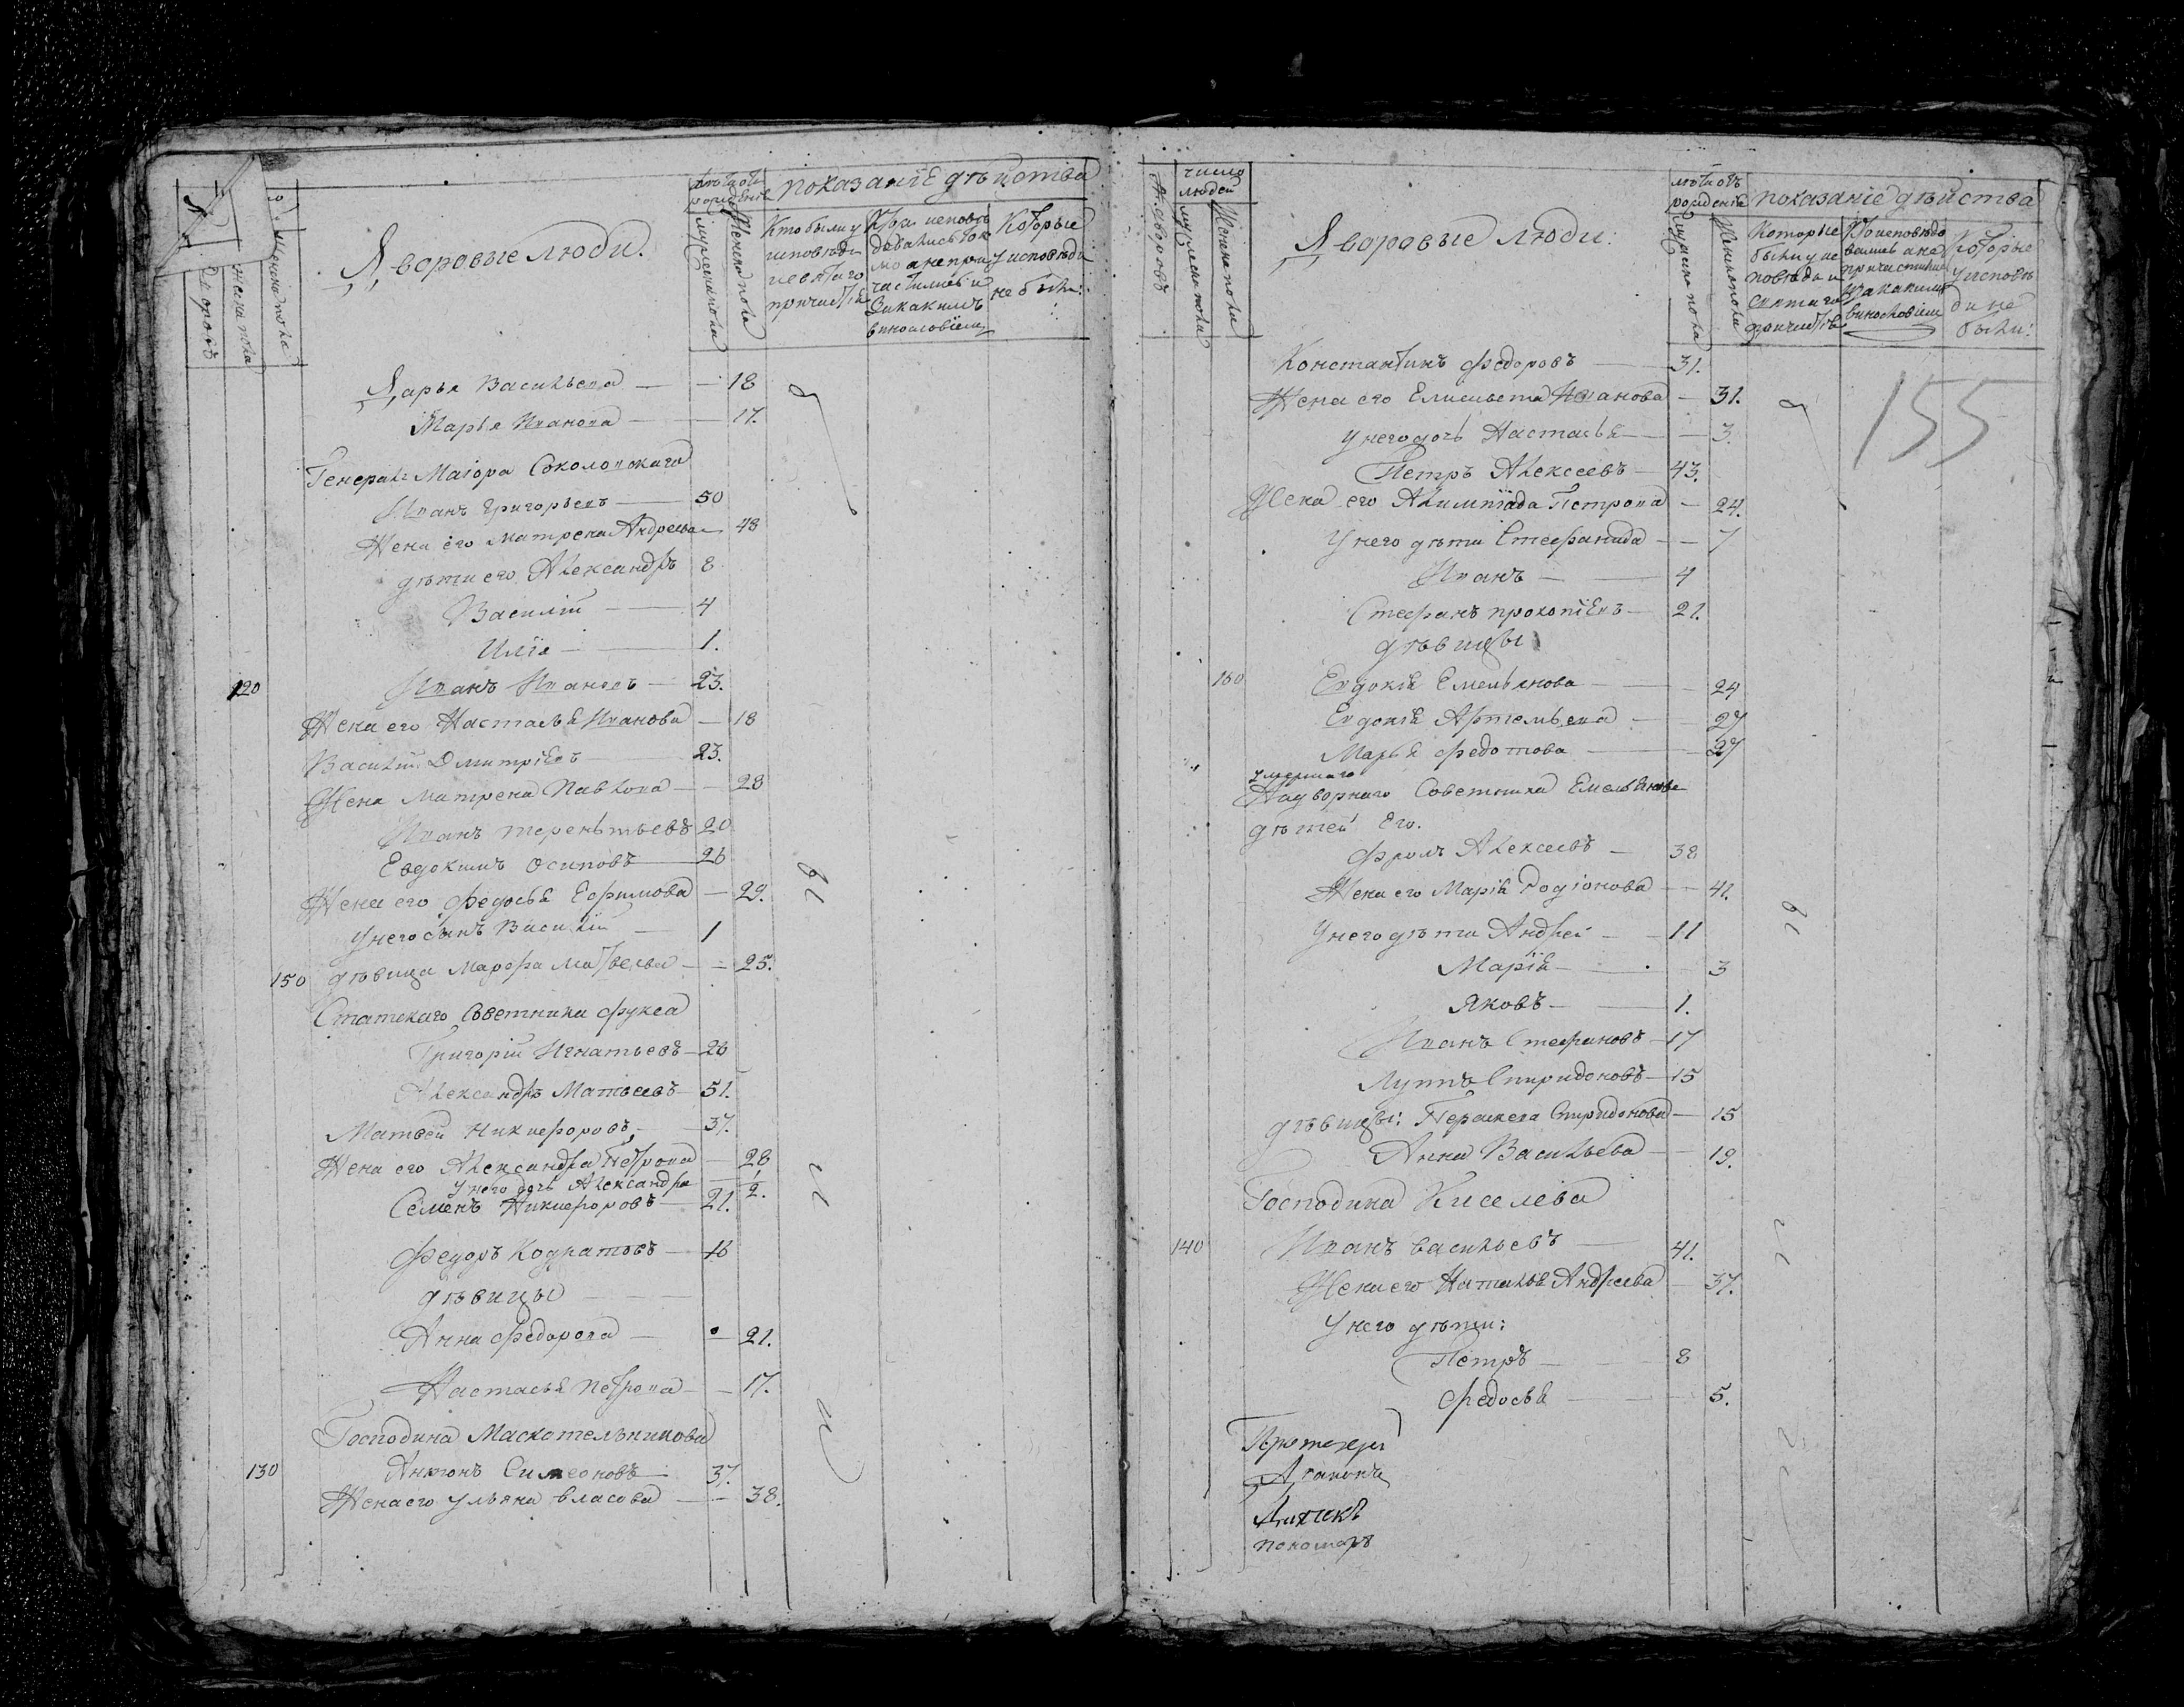 Дворовые люди.
лѣта отъ рождения
показаніе дѣиства
мужеска пола
Женска пола
Кто были у исповѣди и святаго причастія
Кои исповѣдовались токмо а не причастились и за какимъ винословіемъ
Которые у исповѣди не были:
Дарья Васильева — — 18
Марья Иванова — — 17.
Генералъ Маіора Соколовскаго
Иванъ Григорьевъ — 50
Жена его Матрена Андреева — 48
дѣти его Александръ 8
Василіи — 4
Илія — 1.
120 Иванъ Ивановъ — 23.
Жена его Настасья Иванова — 18
Василіи Дмитріевъ 23.
Жена Матрена Павлова — — 28
Иванъ терентьевъ 20
Евдокимъ осиповъ 26
Жена его федосья Ефимова — 29.
У него сынъ Василіи — 1
150 дѣвица Марфа Матвеева — — 25.
Статскаго Советника фукса
Григоріи Игнатьевъ — 26
Александръ Матвеевъ — 51.
Матвеи Никифоровъ — 37.
Жена его Александра Петрова — 28
У него дочь Александра — 2.
Семенъ Никифоровъ — 21.
Федоръ Кодратовъ — 16
дѣвицы
Анна Федорова — — 21.
Настасья Петрова — — 17.
Господина Маскательникова
130 Антонъ Симеоновъ 37.
Жена его ульяна власова — — 38.
Ч. дворовъ
число людей
мужеска пола
Женска пола
Дворовые люди:
лѣта отъ рождения
показаніе дѣиства
мужеска пола
Женска пола
Которые были у исповѣди и святаго причастія
Кои исповѣдовались а не причастились и за какимъ винословіемъ
Которые у исповѣди не были:
155
Константинъ федоровъ — 31.
Жена его Елисавета Иванова — 31.
у него дочь Настасья — — 3.
Петръ Алексеевъ — 43.
Жена его Алимпіада Петрова — 24.
У него дѣти Стефанида — — 7
Иванъ — — 4
Стефанъ прокопіевъ — 21.
дѣвицы
160 Евдокія Емельянова — — 24
Евдокія Артемьева — 27
Марья федотова — 27
умершаго
Надворнаго Советника Емельянова
дѣтеи Его.
Фролъ Алексеевъ — 38
Жена его Марія Родіонова — — 41.
У него дѣти Андреи — — 11
Марія — — 3
Яковъ — — 1.
Иванъ Стефановъ — 17
Луппъ Спиридоновъ — 15
дѣвицы: Пераскева Спиридонова — 15
Анна Васильева — — 19.
Господина Киселева
140 Иванъ васильевъ — 41.
Жена его Наталья Андреева — 37.
У него дѣти:
Петръ — — 8
Федосья — — 5.
Протоіереи
Диаконъ
Дьячекъ
пономарь